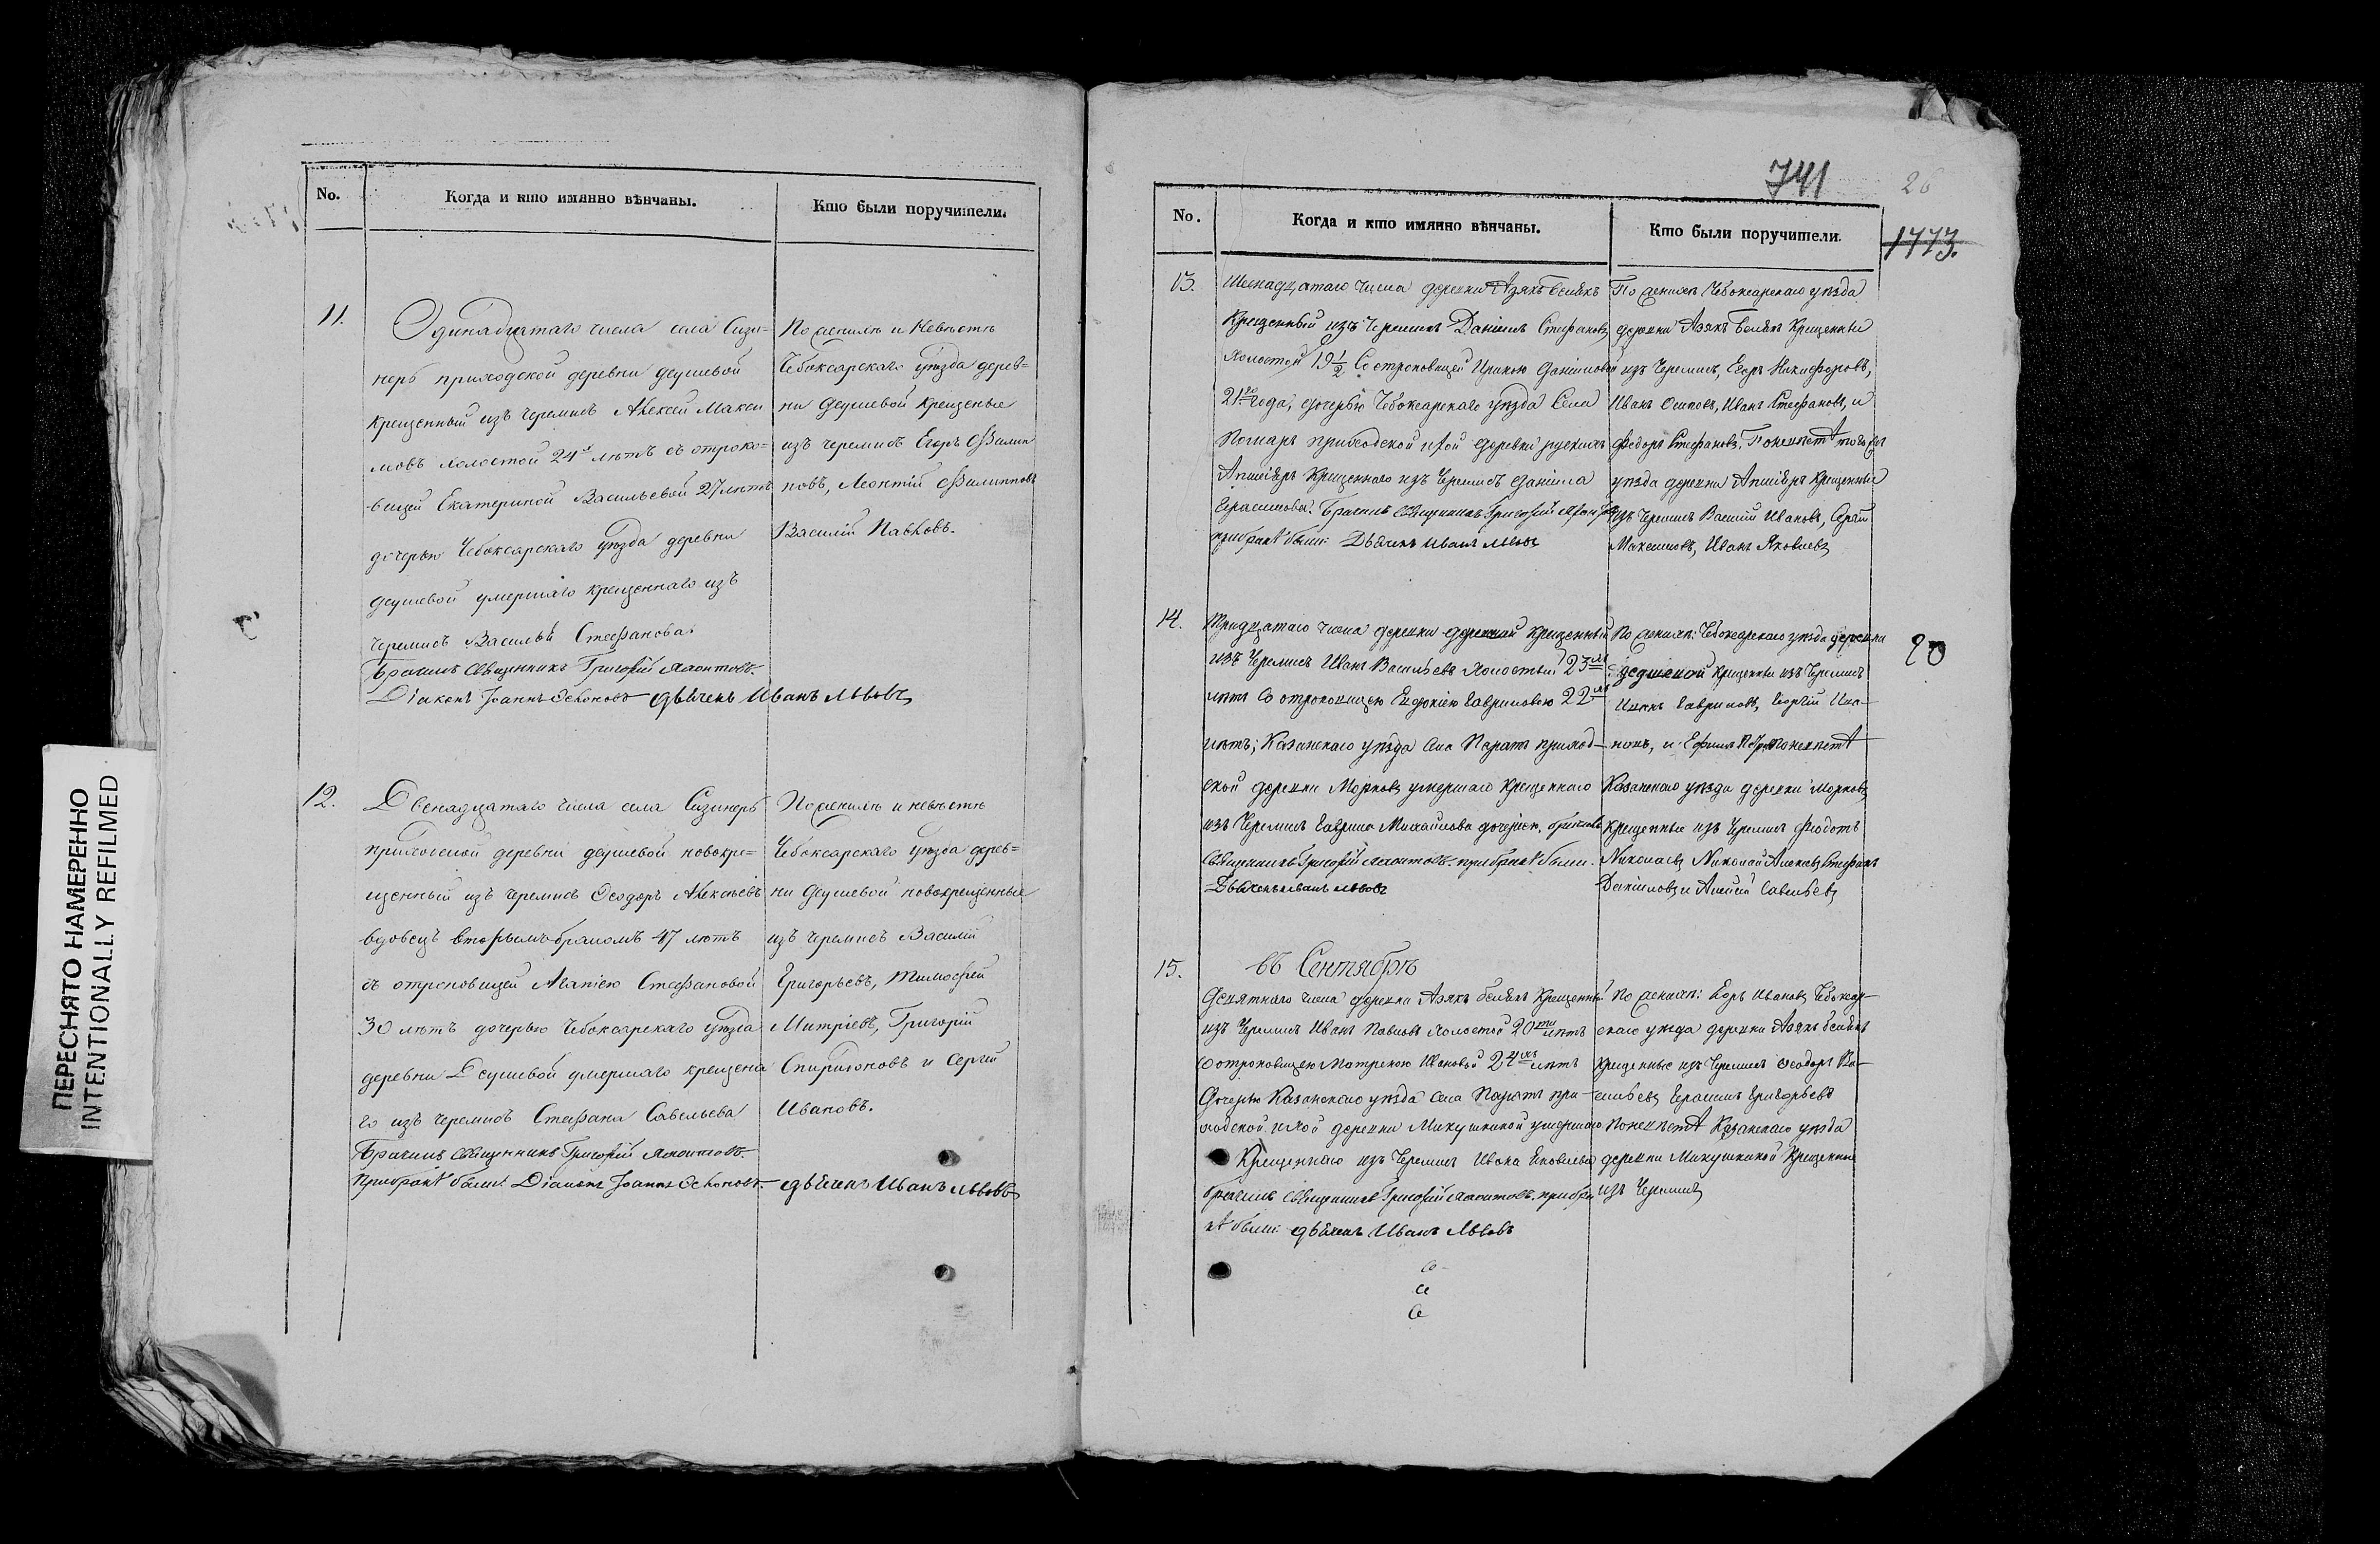 No.
Когда и кто имянно вѣнчаны.
Кто были поручители.
11.
Одинадцатаго числа села Сизи-
неръ приходской деревни Деушевой
крещенный изъ черемисъ Алексей Макси
мовъ холостой 24х лѣтъ съ отроко-
вицей Екатериной Васильевой 27 лѣтъ
дочерью Чебоксарскаго уѣзда деревни
Деушевой умершаго крещеннаго изъ
черемисъ Василья Стефанова.
Брачилъ Священникъ Григорій
Діаконъ Іоаннъ дьячекъ Иванъ Львовъ
По женихѣ и невѣстѣ
Чебоксарскаго уѣзда дерев=
ни Деушевой крещеные
изъ черемисъ Егоръ Филип
повъ, Леонтій Филипповъ
Василій Павловъ.
12.
Двенадцатаго числа села Сизинеръ
приходской деревни Деушевой новокре=
щенный изъ черемисъ Ѳеодоръ Алексѣевъ
вдовецъ вторымъ бракомъ 47 лѣтъ
съ отроковицей Стефановой
30 лѣтъ дочерью Чебоксарскаго уѣзда
деревни Деушевой умершаго крещена
го изъ черемисъ Стефана Савельева
Брачилъ Священникъ Григорій
Прибракѣ были: Діаконъ Іоаннъ дьячекъ Иванъ Львовъ
По женихѣ и невѣстѣ
Чебоксарскаго уѣзда дерев=
ни Деушевой новокрещенные
изъ черемисъ Василій
Григорьевъ, Тимофей
Митріевъ, Григорій
Спиридоновъ и Сергій
Ивановъ.
ПЕРЕСНЯТО НАМЕРЕННО
INTENTIONALLY REFILMED
741
26
1773.
No.
Когда и кто имянно вѣнчаны.
Кто были поручители.
13.
числа деревни Азякъ Белякъ
крещенный изъ черемисъ Даніилъ Стефановъ
холостой 19 1/2 Со отроковицей Ириною Даніиловой
21го года, дочерью Чебоксарскаго уѣзда Села
приходской деревни
крещеннаго изъ черемисъ Даніила
Герасимова. Брачилъ Священникъ Григорій
прибракѣ были: Дьячекъ Иванъ Львовъ
По женихѣ Чебоксарскаго уѣзда
деревни Азякъ Белякъ крещенные
изъ черемисъ, Егоръ Никифоровъ,
Иванъ Осиповъ, Иванъ Стефановъ, и
Федоръ Стефановъ. По невѣстѣ
уѣзда деревни крещенные
изъ черемисъ Василій Ивановъ,
Максимовъ, Иванъ Яковлевъ
14.
Тридцатаго числа деревни крещенный
изъ черемисъ Иванъ Васильевъ холостый 23
лѣтъ Со отроковицею Евдокіею Гавриловою 22
лѣтъ; Казанскаго уѣзда села Паратъ приход-
ской деревни Морковъ умершаго крещеннаго
изъ черемисъ Гаврила Михайлова дочерью. брачилъ
Священникъ Григорій прибракѣ были.
Дьячекъ Иванъ Львовъ
По женихѣ: Чебоксарскаго уѣзда деревни
крещенные изъ черемисъ
Иванъ Гавриловъ, Георгій Ива-
новъ, и Ефимъ по невѣстѣ
Казанскаго уѣзда деревни Морковъ
крещенные изъ черемисъ Федотъ
Николаевъ Николай Алексѣевъ Стефанъ
Даниловъ и Алексей Савельевъ
20
15.
въ Сентябрѣ
Девятаго числа деревни Азякъ Белякъ крещенный
изъ черемисъ Иванъ Павловъ холостой 20ти лѣтъ
со отроковицею Матреною Ивановой 24 лѣтъ
дочерью Казанскаго уѣзда села Паратъ при-
ходской деревни Микушкиной умершаго
крещеннаго изъ черемисъ Ивана Яковлева
брачилъ Священникъ Григорій прибра
кѣ были: дьячекъ Иванъ Львовъ
По женихѣ: Егоръ Ивановъ Чебоксар-
скаго уѣзда деревни Азякъ Белякъ
крещенные изъ черемисъ Ѳеодоръ Ва-
сильевъ Герасимъ Григорьевъ
по невѣстѣ Казанскаго уѣзда
деревни Микушкиной крещенные
изъ черемисъ